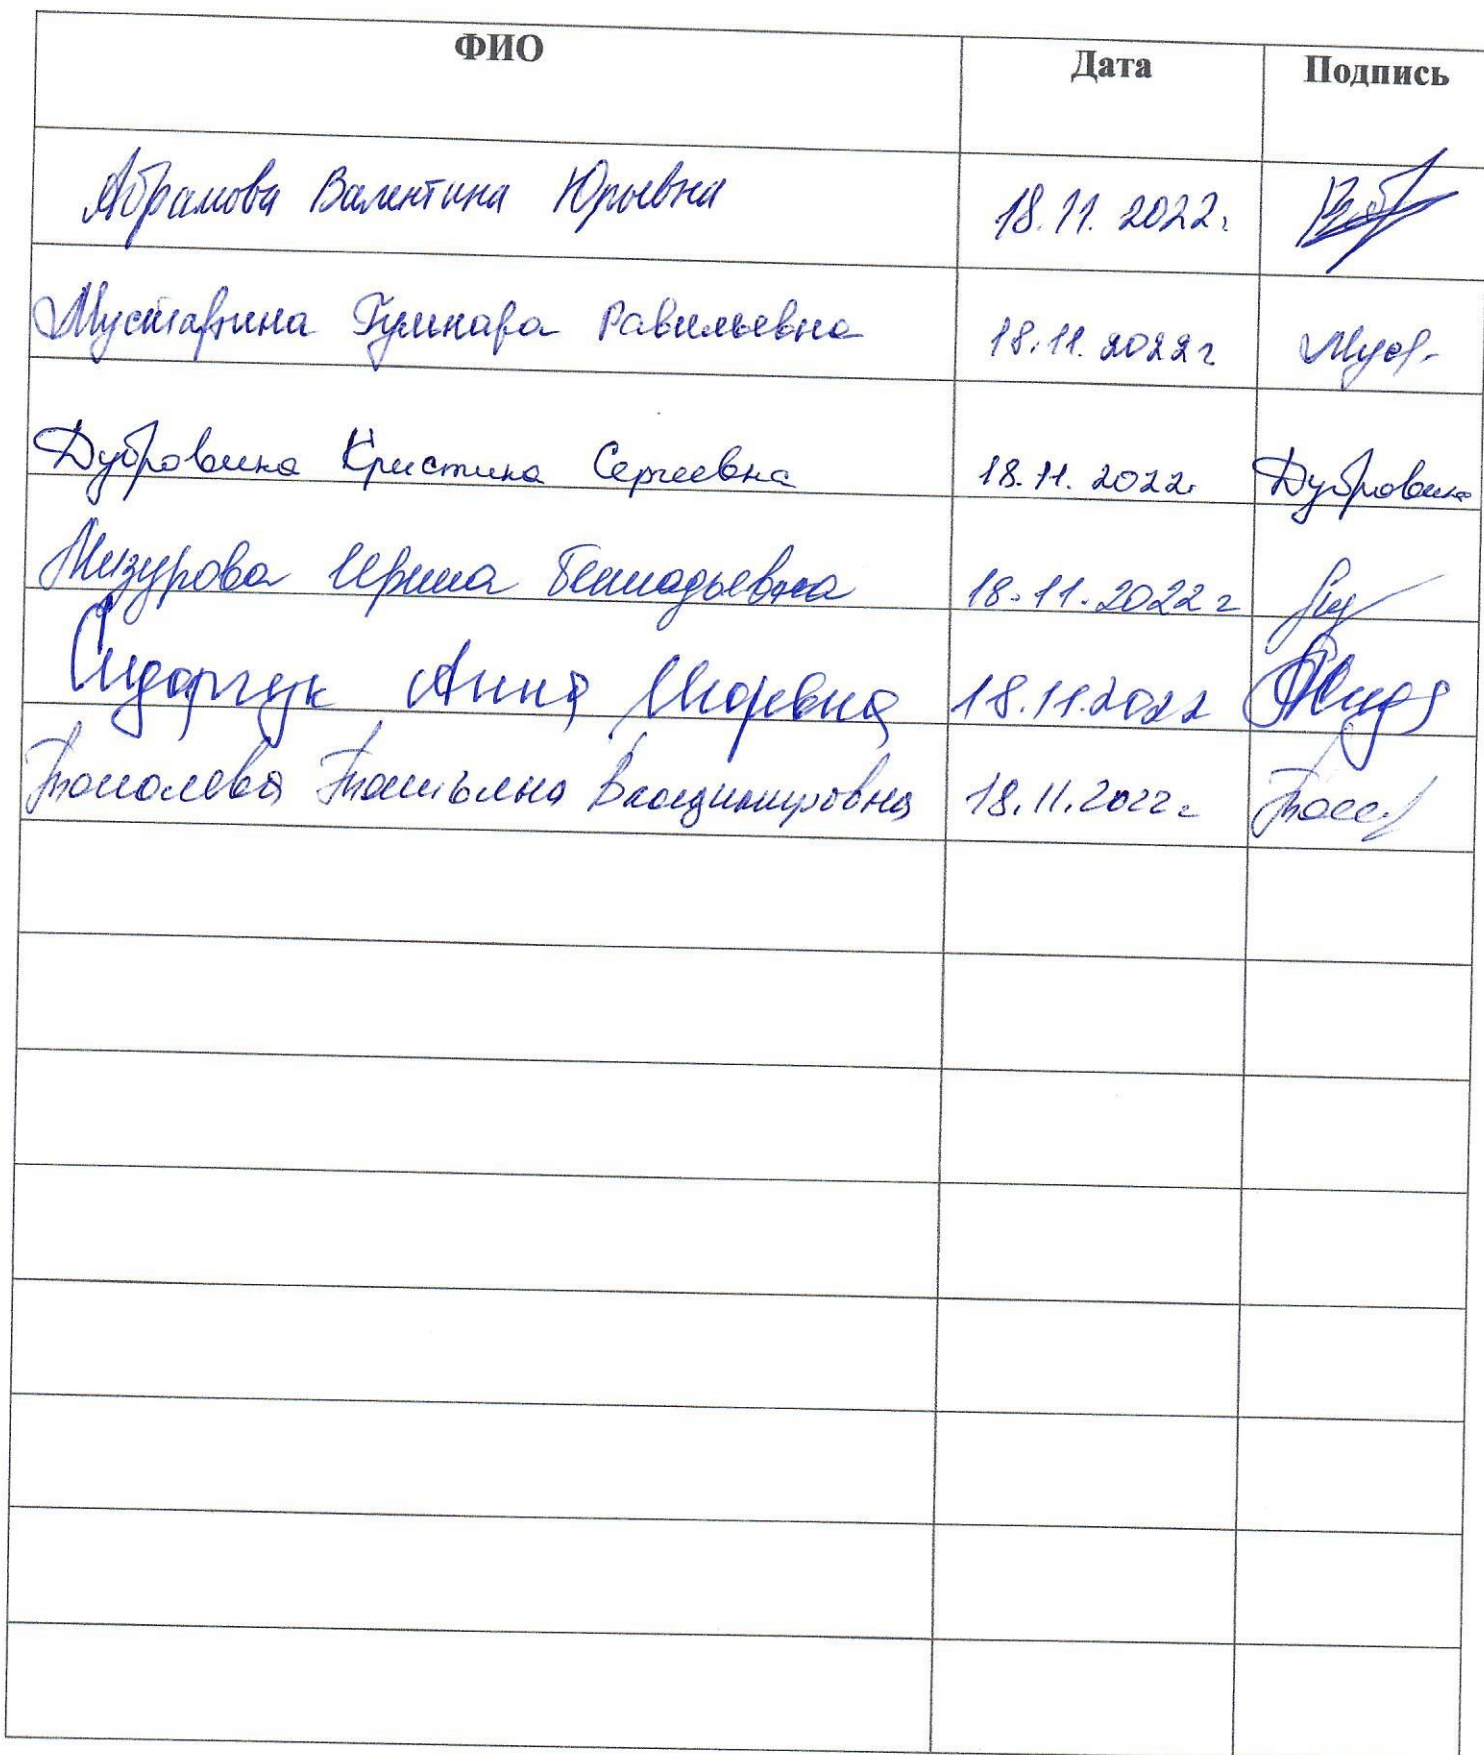 ФИО Дата Подпись
Абрамова Валентина Юрьевна 18.11.2022г
Мустафина Гульнара Равильевна 18.11.2022г Муст
Дубровина Кристина Сергеевна 18.11.2022г Дубровина
Мизурова Ирина Геннадьевна 18.11.2022г
Сидорчук Анна Игоревна 18.11.2022
Тополева Татьяна Владимировна 18.11.2022г